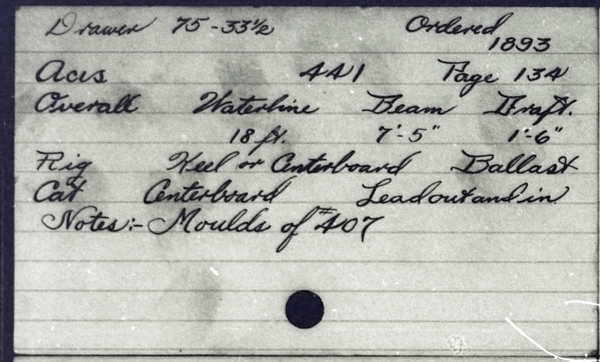 Drawer 75-33½ Ordered
1893
Acis 441 Page 134
Overall Waterline Beam Draft.
18 ft. 7'-5" 1'-6"
Rig Keel or Centerboard Ballast
Cat Centerboard Lead out and in
Notes:- Moulds of #407